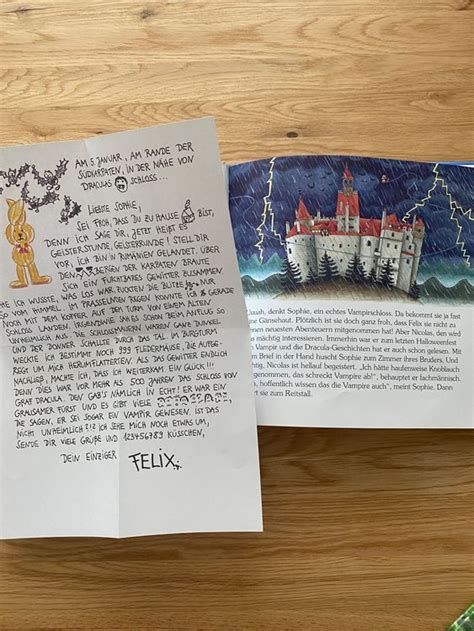 AM 5 JANUAR, AM RANDE DER
SÜDKARPATEN, IN DER NÄHE VON
DRACULAS SCHLOSS...
LIEBSTE SOPHIE,
SEI FROH, DASS DU ZU HAUSE BIST,
DENN ICH SAGE DIR, JETZT HEIẞT ES
GEISTERSTUNDE, GEISTERRUNDE! STELL DIR
VOR, ICH BIN IN RUMÄNIEN GELANDET. ÜBER
DEN BERGEN DER KARPATEN BRAUTE
SICH EIN FURCHTBARES GEWITTER ZUSAMMEN.
HE ICH WUSSTE, WAS LOS WAR ZUCKTEN DIE BLITZE NUR
SO VOM HIMMEL. IM PRASSELNDEN REGEN KONNTE ICH GERADE
NOCH MIT DEM KOFFER AUF DEM TURM VON EINEM ALTEN
SCHLOSS LANDEN. IRGENDWIE SAH ES SCHON BEIM ANFLUG SO
UNHEIMLICH AUS. DIE SCHLOSSMAUERN WAREN GANZ DUNKEL
UND DER DONNER SCHALLTE DURCH DAS TAL. IM BURGTURM
WECKTE ICH BESTIMMT NOCH 993 FLEDERMÄUSE, DIE AUFGE
REGT UM MICH HERUMFLATTERTEN. ALS DAS GEWITTER ENDLICH
NACHLIEß, MACHTE ICH, DASS ICH WEITERKAM. EIN GLÜCK!!!
DENN DIES WAR VOR MEHR ALS 500 JAHREN DAS SCHLOSS VON
GRAF DRACULA. DEN GAB'S NÄMLICH IN ECHT! ER WAR EIN
GRAUSAMER FÜRST UND ES GIBT VIELE
DIE SAGEN, ER SEI SOGAR EIN VAMPIR GEWESEN. IST DAS
NICHT UNHEIMLICH ICH SEHE MICH NOCH ETWAS UM,
SENDE DIR VIELE GRÜẞE UND 123456789 KÜSSCHEN,
DEIN EINZIGER FELIX
uuah, denkt Sophie, ein echtes Vampirschloss. Da bekommt sie ja fast
ne Gänsehaut. Plötzlich ist sie doch ganz froh, dass Felix sie nicht zu
inen neuesten Abenteuern mitgenommen hat! Aber Nicolas, den wird
s mächtig interessieren. Immerhin war er zum letzten Halloweenfest
Vampir und die Dracula-Geschichten hat er auch schon gelesen. Mit
m Brief in der Hand huscht Sophie zum Zimmer ihres Bruders. Und
htig, Nicolas ist hellauf begeistert. „Ich hätte haufenweise Knoblauch
genommen, das schreckt Vampire ab!", behauptet er fachmännisch.
, hoffentlich wissen das die Vampire auch", meint Sophie. Dann
st sie zum Reitstall.